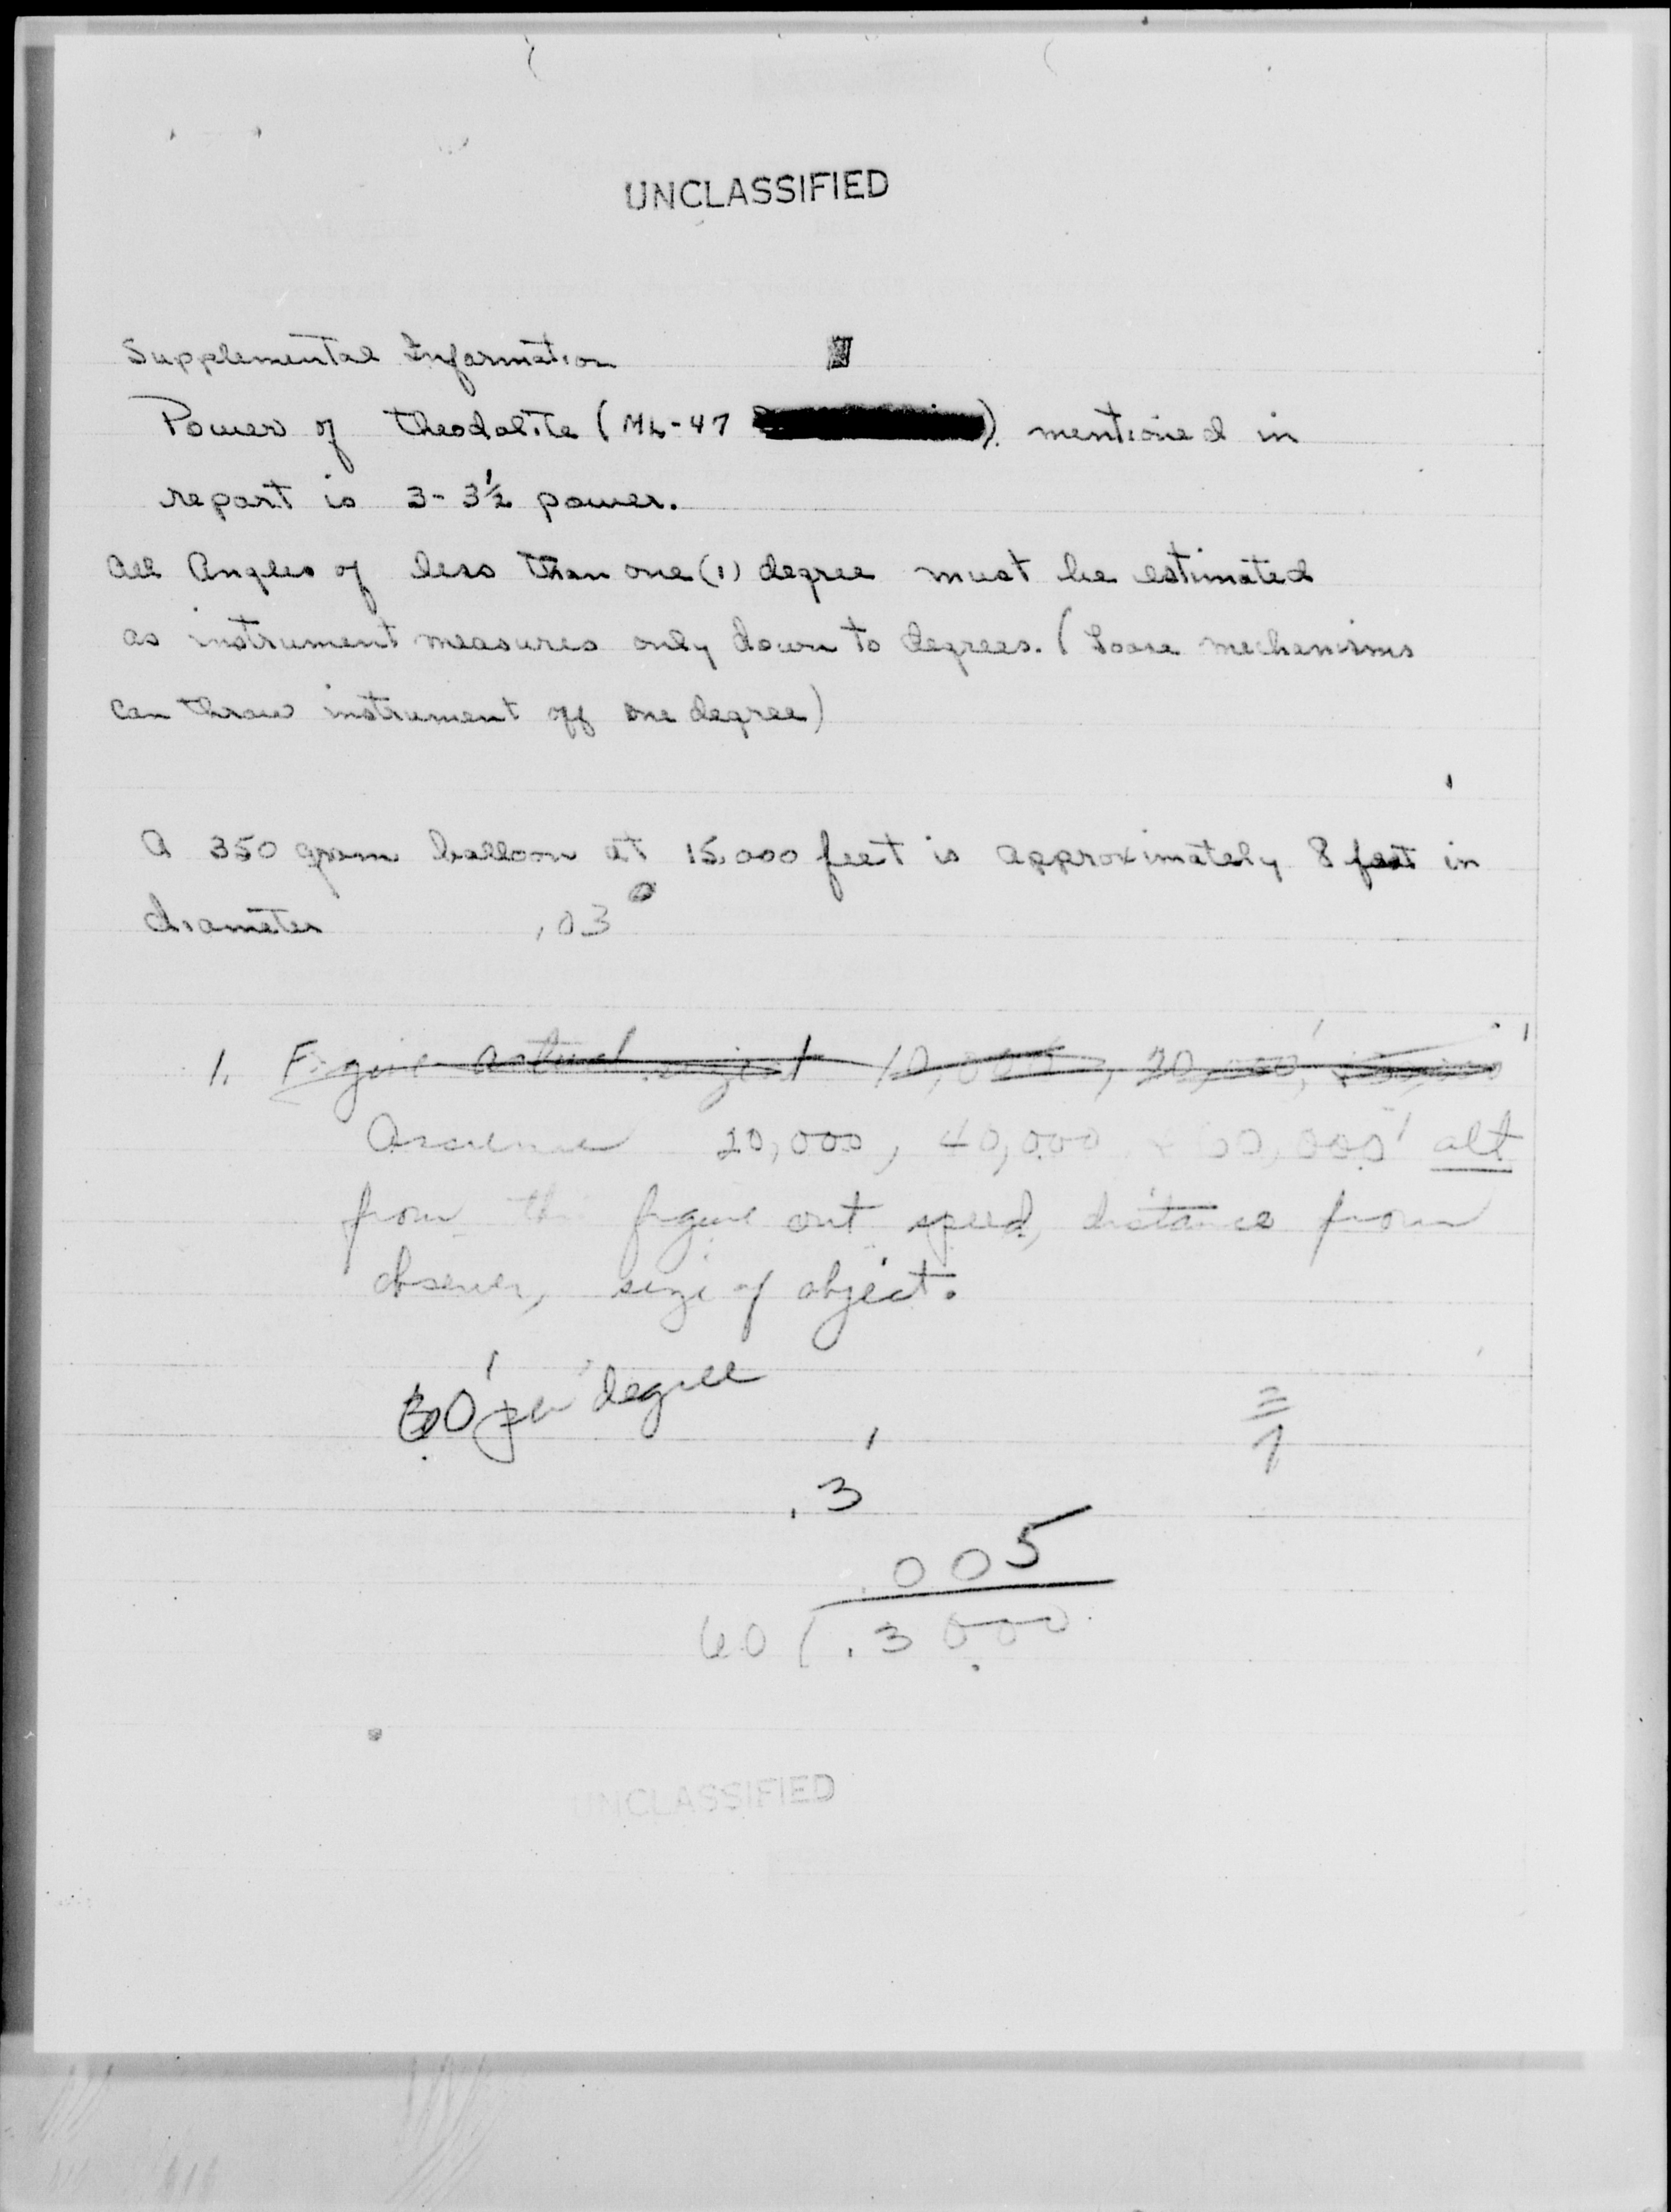 UNCLASSIFIED
Supplemental Information
Power of theodolite (ML-47 ) mentioned in
report is 3-3½ power.
All Angles of less than one (1) degree must be estimated
as instrument measures only down to degrees. (Loose mechanisms
can throw instrument off one degree)
A 350 gram balloon at 15,000 feet is approximately 8 feet in
diameter .03°
1. Figure actual 10,000', 20,000',
Assume 20,000, 40,000 + 60,000' alt
from this figure out speed, distance from
observer, size of object.
60' per degree
.3'
.005
60 ( .3000
UNCLASSIFIED